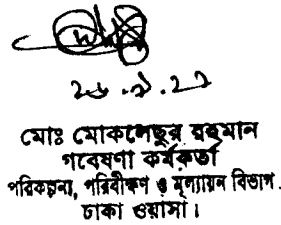 মোঃ মোকলেছুর রহমান
গবেষণা কর্মকর্তা
পরিকল্পনা, পরিবীক্ষণ ও মূল্যায়ন বিভাগ.
ঢাকা ওয়াসা।